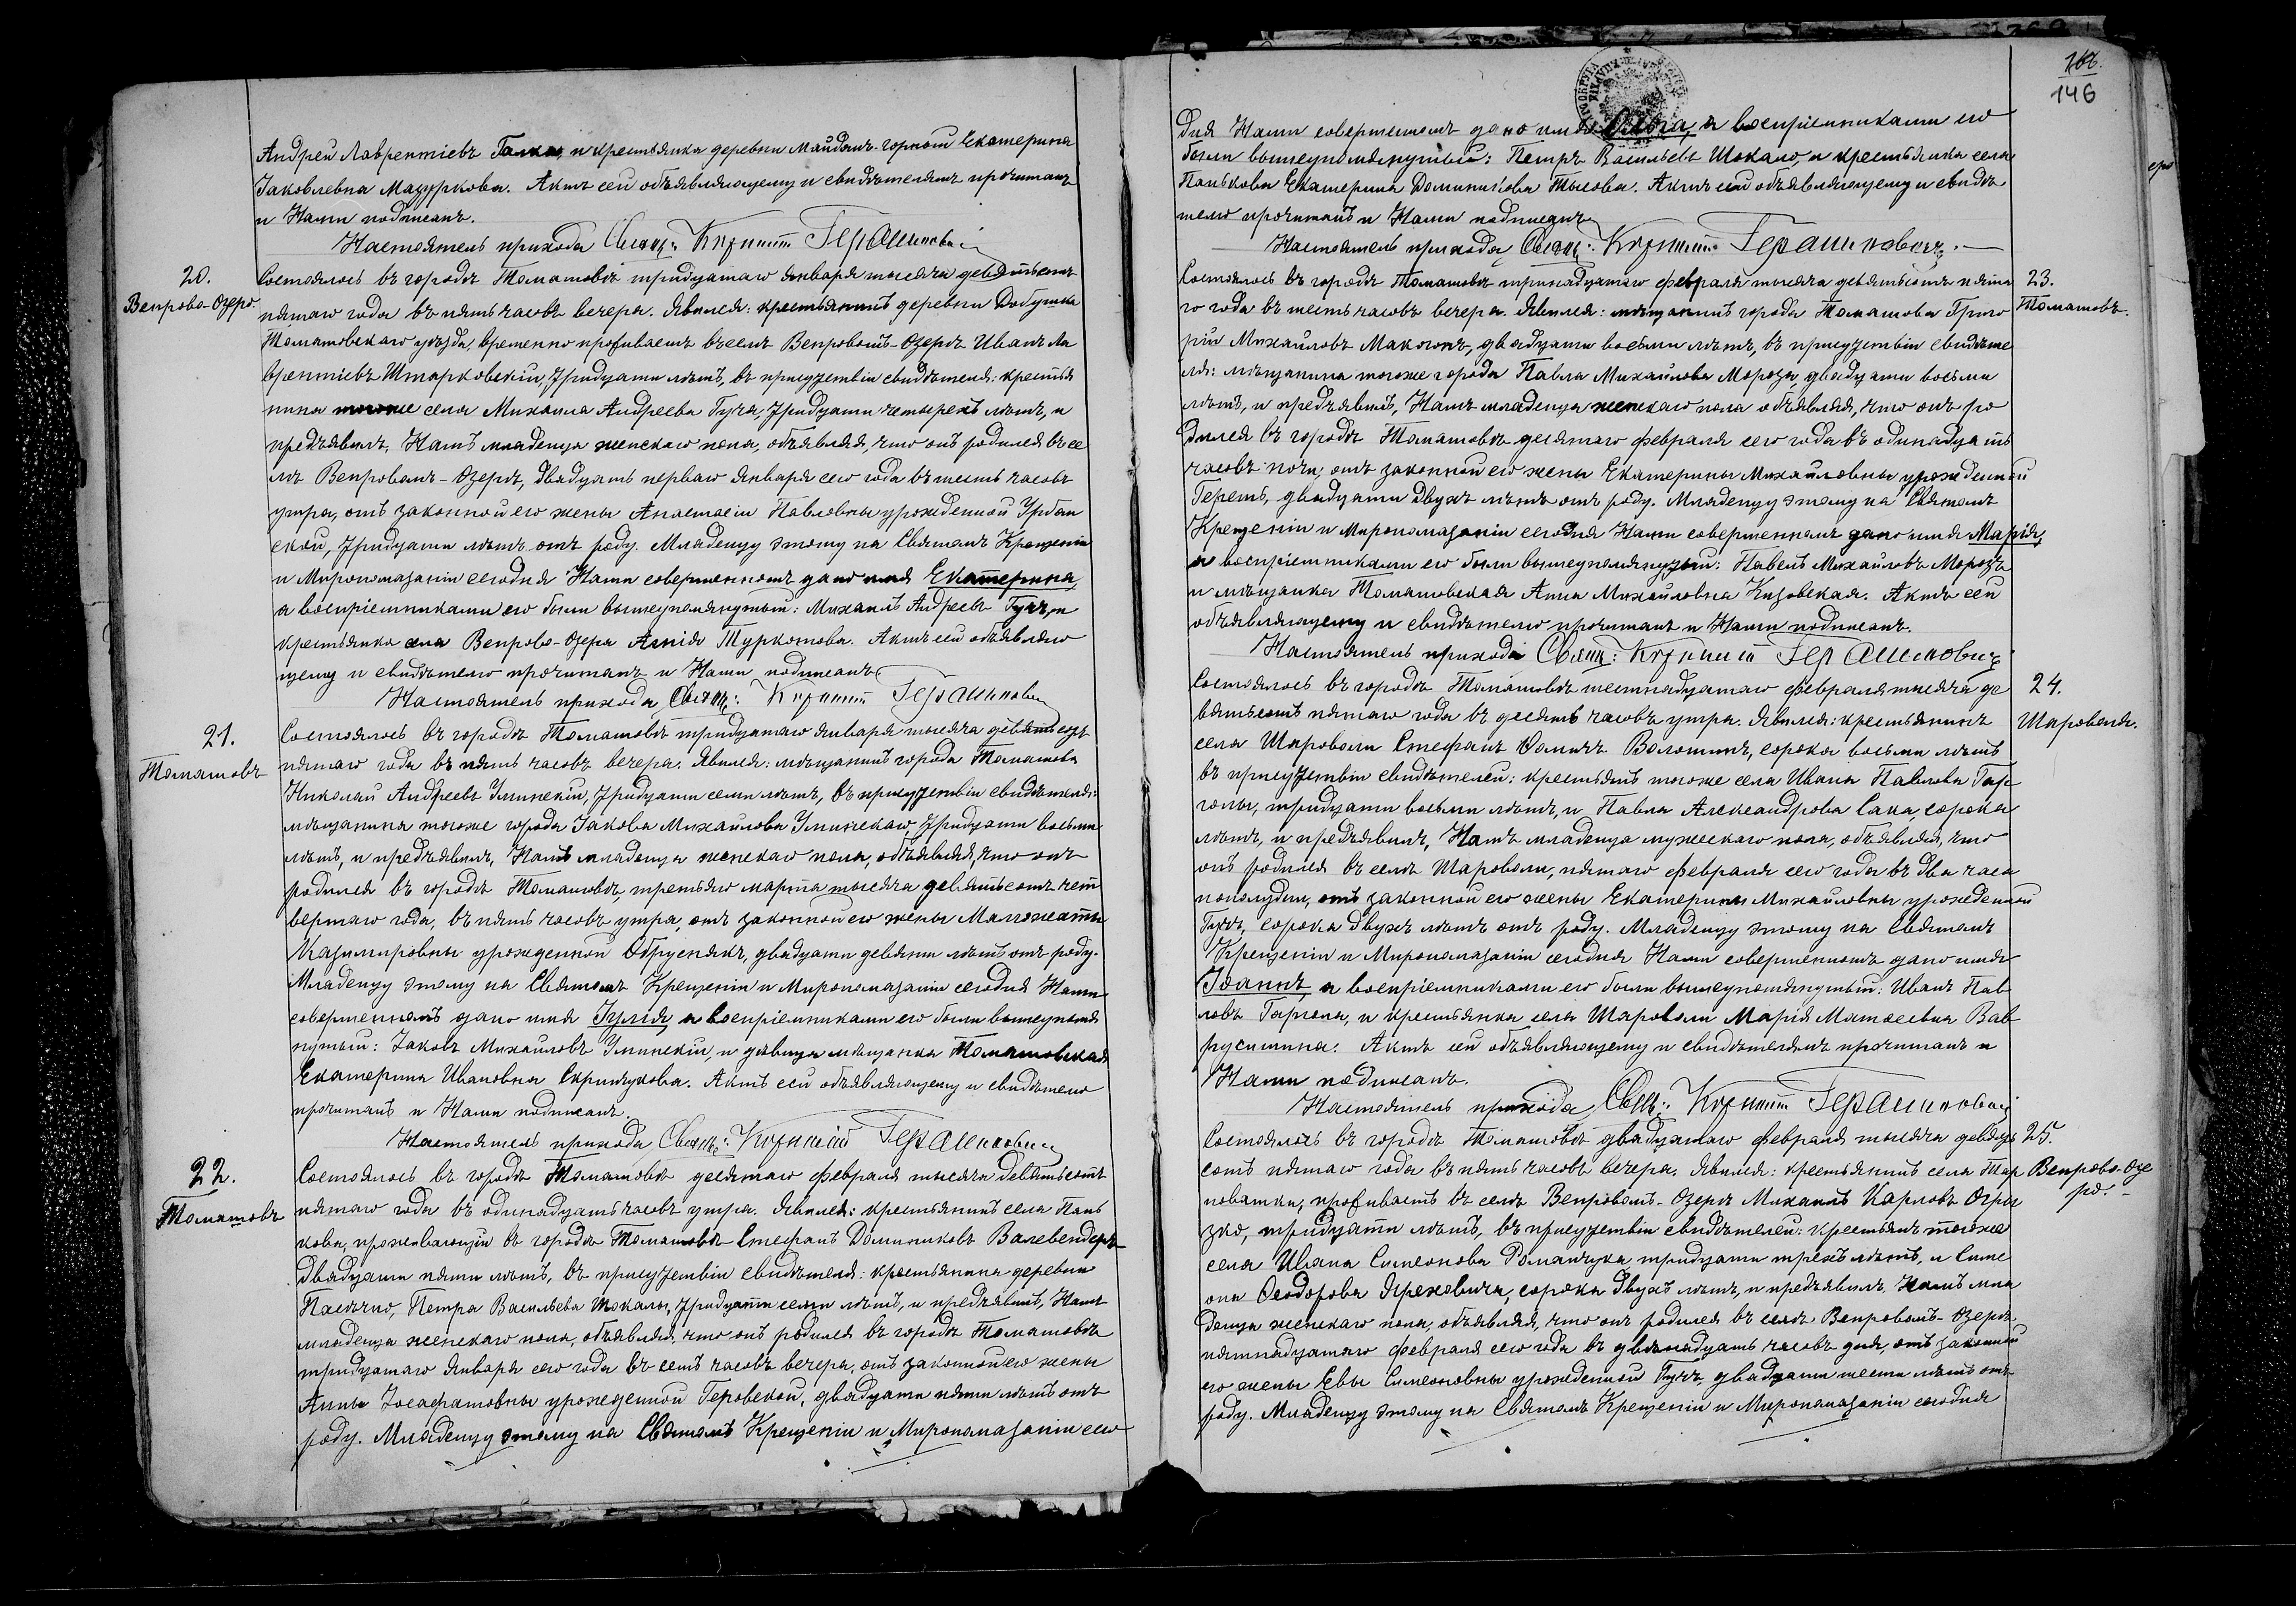 Андрей Лаврентіевъ Галка, и крестьянка деревни Майданъ-горной Екатерина
Іаковлевна Мазуркова. Актъ сей объявляющему и свидѣтелямъ прочитанъ
и Нами подписанъ.
Настоятель прихода Свящ: Герашиновичъ
20.
Вепрово-Озеро.
Состоялось въ городѣ Томашовѣ тридцатаго января тысяча девятьсотъ
пятаго года въ пять часовъ вечера. Явился: крестьянинъ деревни
Томашовскаго уѣзда, временно проживаетъ въ селѣ Вепровомъ-Озерѣ Иванъ Ла
врентіевъ Штарковскій, тридцати лѣтъ, въ присутствіи свидѣтеля: крестья
нина тогоже села Михаила Андреева Гуча, тридцати четырехъ лѣтъ, и
предъявилъ Намъ младенца женскаго пола, объявляя, что онъ родился въ се
лѣ Вепровомъ-Озерѣ, двадцать перваго января сего года въ шесть часовъ
утра, отъ законной его жены Анастасіи Павловны урожденной Урбан
ской, тридцати лѣтъ отъ роду. Младенцу этому на Святомъ Крещеніи
и Миропомазаніи сегодня Нами совершенномъ дано имя Екатерина,
а воспріемниками его были вышеупомянутый: Михаилъ Андреевъ Гучъ, и
крестьянка села Вепрово-Озера Агнія Туркотова. Актъ сей объявляю
щему и свидѣтелю прочитанъ и Нами подписанъ.
Настоятель прихода Свящ: Герашиновичъ
21.
Томашовъ
Состоялось въ городѣ Томашовѣ тридцатаго января тысяча девятьсотъ
пятаго года въ пять часовъ вечера. Явился: мѣщанинъ города Томашова
Николай Андреевъ Улинскій, тридцати семи лѣтъ, въ присутствіи свидѣтеля:
мѣщанина тогоже города Іакова Михайлова Улинскаго, тридцати восьми
лѣтъ, и предъявилъ Намъ младенца женскаго пола, объявляя, что онъ
родился въ городѣ Томашовѣ, третьяго марта тысяча девятьсотъ чет
вертаго года, въ пять часовъ утра, отъ законной его жены Малгожаты
Казимировны урожденной Обруснякъ, двадцати девяти лѣтъ отъ роду.
Младенцу этому на Святомъ Крещеніи и Миропомазаніи сегодня Нами
совершенномъ дано имя Іулія, а воспріемниками его были вышеупомя
нутый: Іаковъ Михайловъ Улинскій, и дѣвица мѣщанка Томашовская
Екатерина Ивановна Скринчукова. Актъ сей объявляющему и свидѣтелю
прочитанъ и Нами подписанъ.
Настоятель прихода Свящ: Герашиновичъ
22.
Томашовъ
Состоялось въ городѣ Томашовѣ десятаго февраля тысяча девятьсотъ
пятаго года въ одинадцать часовъ утра. Явился: крестьянинъ села Пань
кова, проживающій въ городѣ Томашовѣ Стефанъ Доминиковъ Валевендеръ
двадцати пяти лѣтъ, въ присутствіи свидѣтеля: крестьянина деревни
Петра Васильева Шокалы, тридцати семи лѣтъ, и предъявилъ Намъ
младенца женскаго пола, объявляя, что онъ родился въ городѣ Томашовѣ
тридцатаго января сего года въ семь часовъ вечера, отъ законной его жены
Анны Іосафатовны урожденной Геровской, двадцати пяти лѣтъ отъ
роду. Младенцу этому на Святомъ Крещеніи и Миропомазаніи сего
146
дня Нами совершенномъ дано имя Ольга, а воспріемниками его
были вышеупомянутый: Петръ Васильевъ Шокало, и крестьянка села
Панькова Екатерина Доминикова Тысова. Актъ сей объявляющему и свидѣ
телю прочитанъ и Нами подписанъ.
Настоятель прихода Свящ: Герашиновичъ.
23.
Томашовъ.
Состоялось въ городѣ Томашовѣ тринадцатаго февраля тысяча девятьсотъ пята
го года въ шесть часовъ вечера. Явился: мѣщанинъ города Томашова Григо
рій Михайловъ Макогонъ, двадцати восьми лѣтъ, въ присутствіи свидѣте
ля: мѣщанина тогоже города Павла Михайлова Мороза, двадцати восьми
лѣтъ, и предъявилъ Намъ младенца женскаго пола объявляя, что онъ ро
дился въ городѣ Томашовѣ десятаго февраля сего года въ одинадцать
часовъ ночи, отъ законной его жены Екатерины Михайловны урожденной
Геретъ, двадцати двухъ лѣтъ отъ роду. Младенцу этому на Святомъ
Крещеніи и Миропомазаніи сегодня Нами совершенномъ дано имя Марія,
а воспріемниками его были вышеупомянутый: Павелъ Михайловъ Морозъ
и мѣщанка Томашовская Анна Михайловна Кизовская. Актъ сей
объявляющему и свидѣтелю прочитанъ и Нами подписанъ.
Настоятель прихода Свящ: Герашиновичъ
24.
Шароволя.
Состоялось въ городѣ Томашовѣ шестнадцатаго февраля тысяча де
вятьсотъ пятаго года въ десять часовъ утра. Явился: крестьянинъ
села Шароволи Стефанъ Фомичъ Волошинъ, сорока восьми лѣтъ
въ присутствіи свидѣтелей: крестьянъ тогоже села Ивана Павлова Гар
голы, тридцати восьми лѣтъ, и Павла Александрова Сака, сорока
лѣтъ, и предъявилъ Намъ младенца мужескаго пола, объявляя, что
онъ родился въ селѣ Шароволи, пятаго февраля сего года въ два часа
пополудни, отъ законной его жены Екатерины Михайловны урожденной
Гучъ, сорока двухъ лѣтъ отъ роду. Младенцу этому на Святомъ
Крещеніи и Миропомазаніи сегодня Нами совершенномъ дано имя
Іоаннъ, а воспріемниками его были вышеупомянутый: Иванъ Пав
ловъ Гаргола, и крестьянка села Шароволи Марія Матвеевна Вав
русишина. Актъ сей объявляющему и свидѣтелямъ прочитанъ и
Нами подписанъ.
Настоятель прихода Свящ: Герашиновичъ
25.
Вепрово-Озе
ро.
Состоялось въ городѣ Томашовѣ двадцатаго февраля тысяча девять
сотъ пятаго года въ пять часовъ вечера. Явился: крестьянинъ села Тар
новатки, проживаетъ въ селѣ Вепровомъ-Озерѣ Михаилъ Карловъ Огры
зко, тридцати лѣтъ, въ присутствіи свидѣтелей: крестьянъ тогоже
села Ивана Симеонова Романчука, тридцати трехъ лѣтъ, и Симе
она Ѳеодорова Яреховича, сорока двухъ лѣтъ, и предъявилъ Намъ мла
денца женскаго пола, объявляя, что онъ родился въ селѣ Вепровомъ-Озерѣ
пятнадцатаго февраля сего года въ двѣнадцать часовъ дня, отъ законной
его жены Евы Симеоновны урожденной Гучъ, двадцати шести лѣтъ отъ
роду. Младенцу этому на Святомъ Крещеніи и Миропомазаніи сегодня